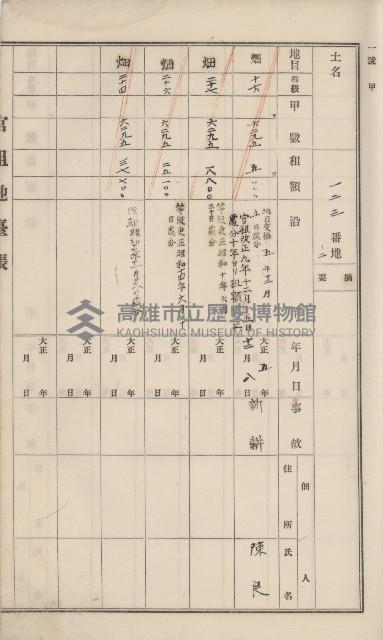 一號 甲
土名
一二三 番地ノ二
摘要
地目 等級 甲數 租額 沿
年月日 事故
佃人
住所氏名
畑 十六 六二九五 五
地目變換 五年十二月
五日處分
官租改正九年十二月
大正 五年 十二月 八日
新耕
陳良
畑 二十七 六二九五 一八八〇〇
等級更正昭和十年六月
二十日處分
大正 年 月 日
畑 二十六 六二九五 二五一〇〇
等級更正昭和
日處分
大正 年 月 日
畑 二十四 六二九五 三七七〇〇
大正 年 月 日
大正 年 月 日
大正 年 月 日
官租地臺帳
高雄市立歷史博物館
KAOHSIUNG MUSEUM OF HISTORY